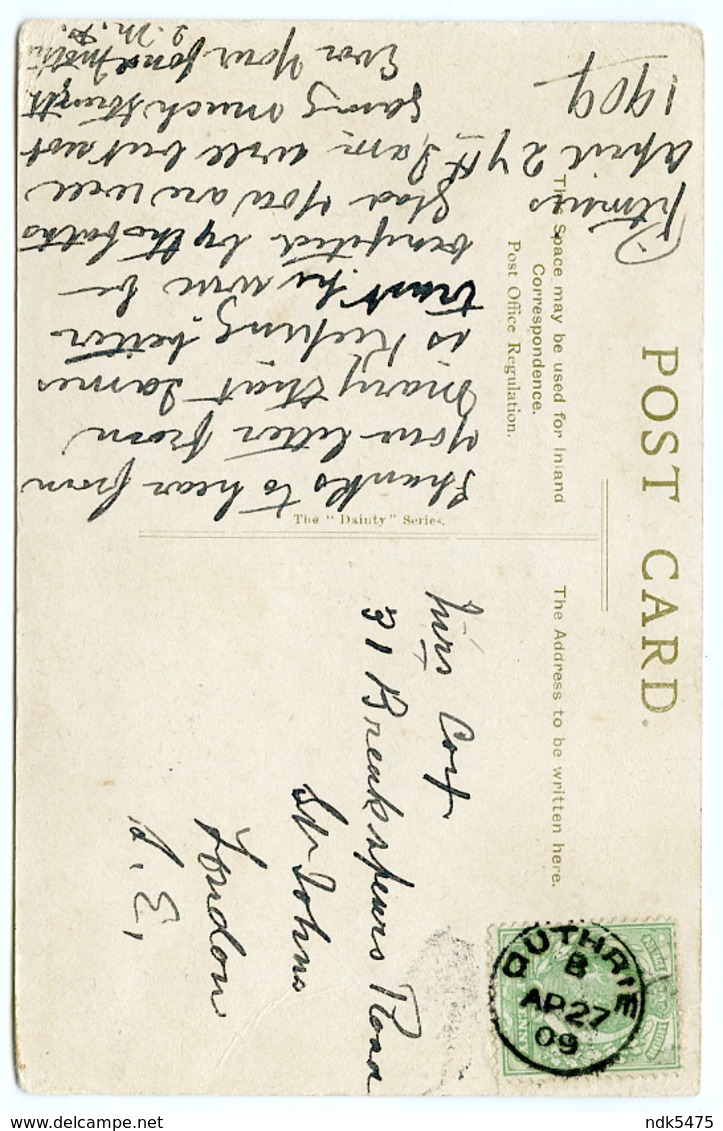 POST CARD.
This Space may be used for Inland
Correspondence.
Post Office Regulation.
The Address to be written here.
The "Dainty" Series.
April 27th
1909
Thanks to hear from
your letter from
Mary that James
is keeping better
trust he will be
benefited by the baths
Glad you are well
I am well but not
going much
Ever your fond Mother
Mrs Cox
31 Breakspears Road
St Johns
London
S.E.
GUTHRIE
B
AP 27
09
ndk5475